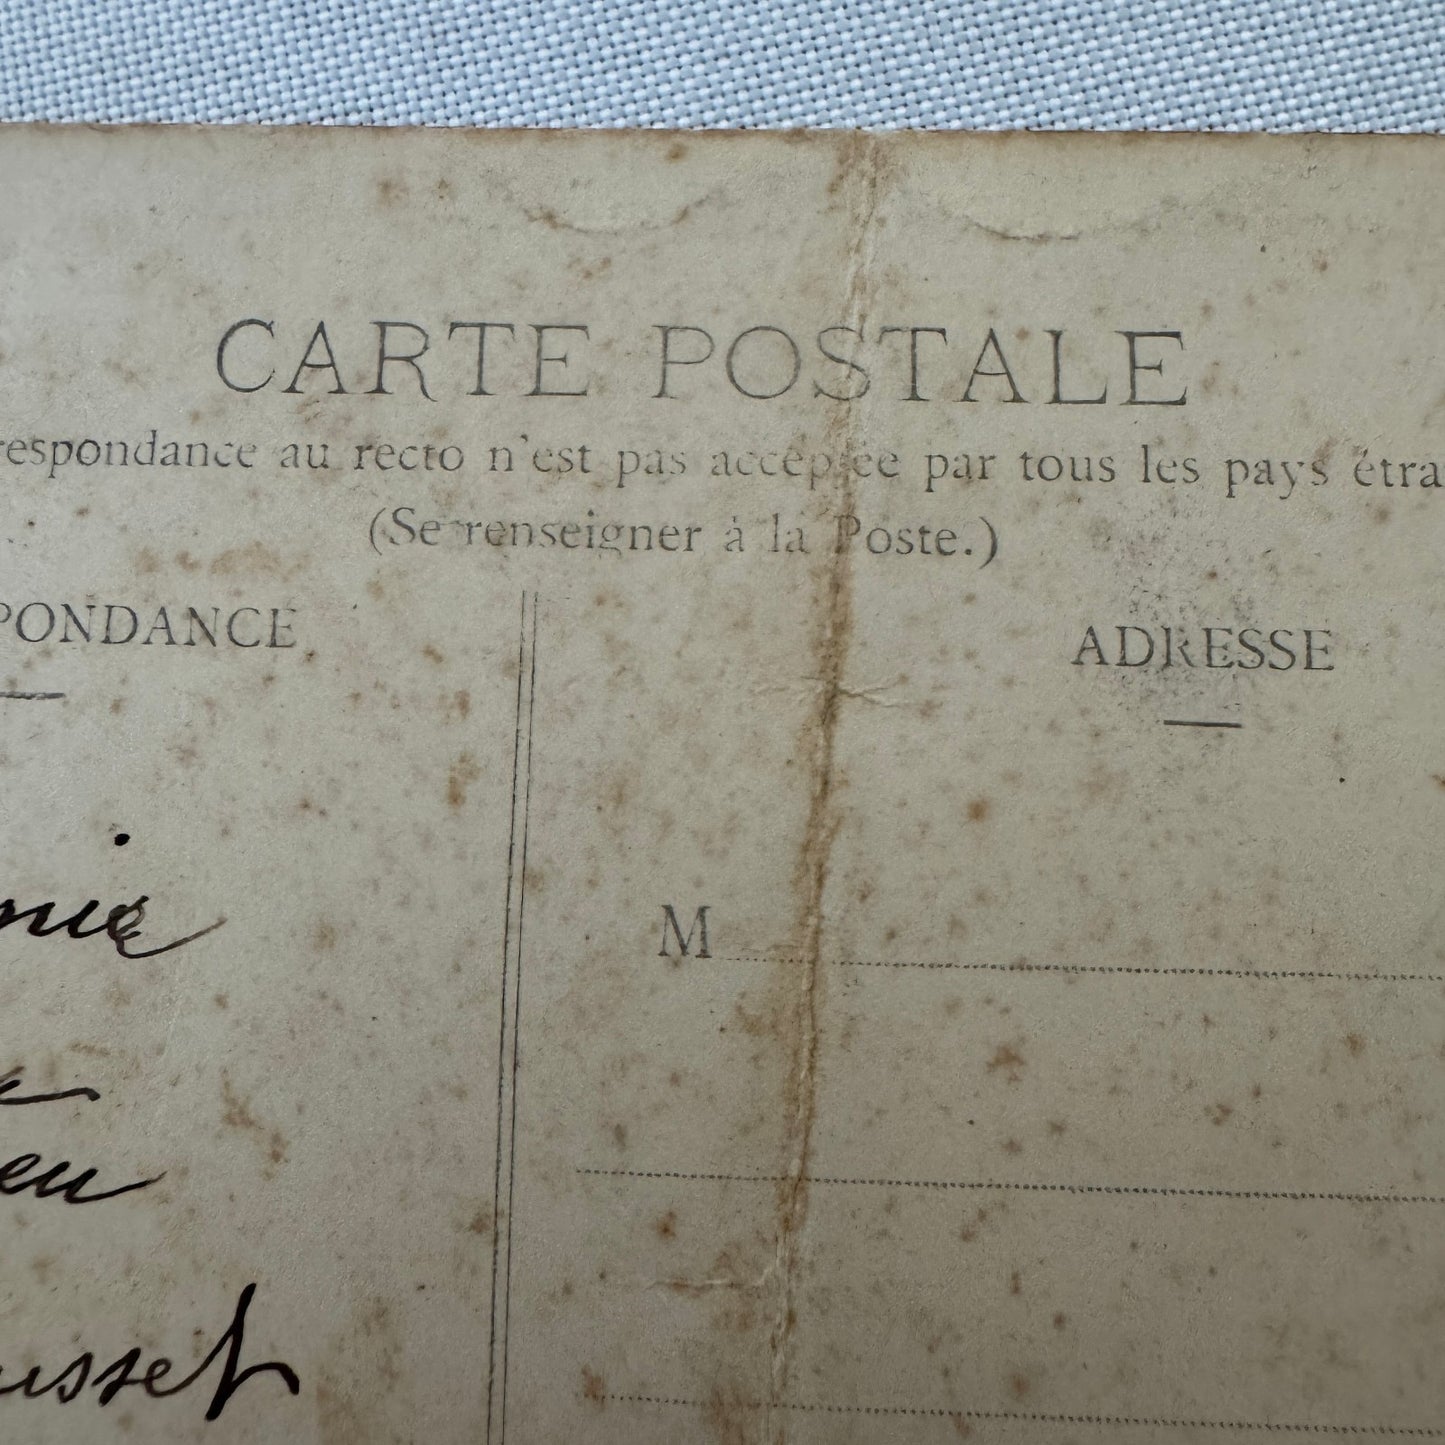 CARTE POSTALE
respondance au recto n'est pas acceptée par tous les pays étra
(Se renseigner à la Poste.)
PONDANCE
ADRESSE
nie
M
eu
usset